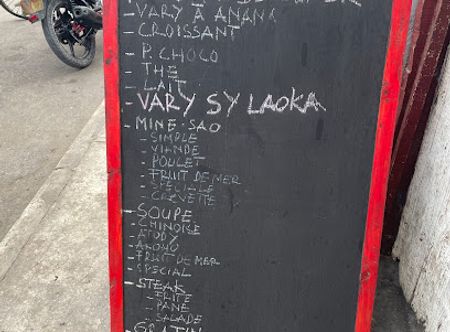 - VARY À ANANA
- CROISSANT
- P. CHOCO
- THE
- LAIT
- VARY SY LAOKA
- MINE-SAO
- SIMPLE
- VIANDE
- POULET
- FRUIT DE MER
- SPECIALE
- CREVETTE
- SOUPE
- CHINOISE
- ATODY
- AKOHO
- FRUIT DE MER
- SPECIAL
- STEAK
- FRITE
- PANE
- SALADE
- GRATIN